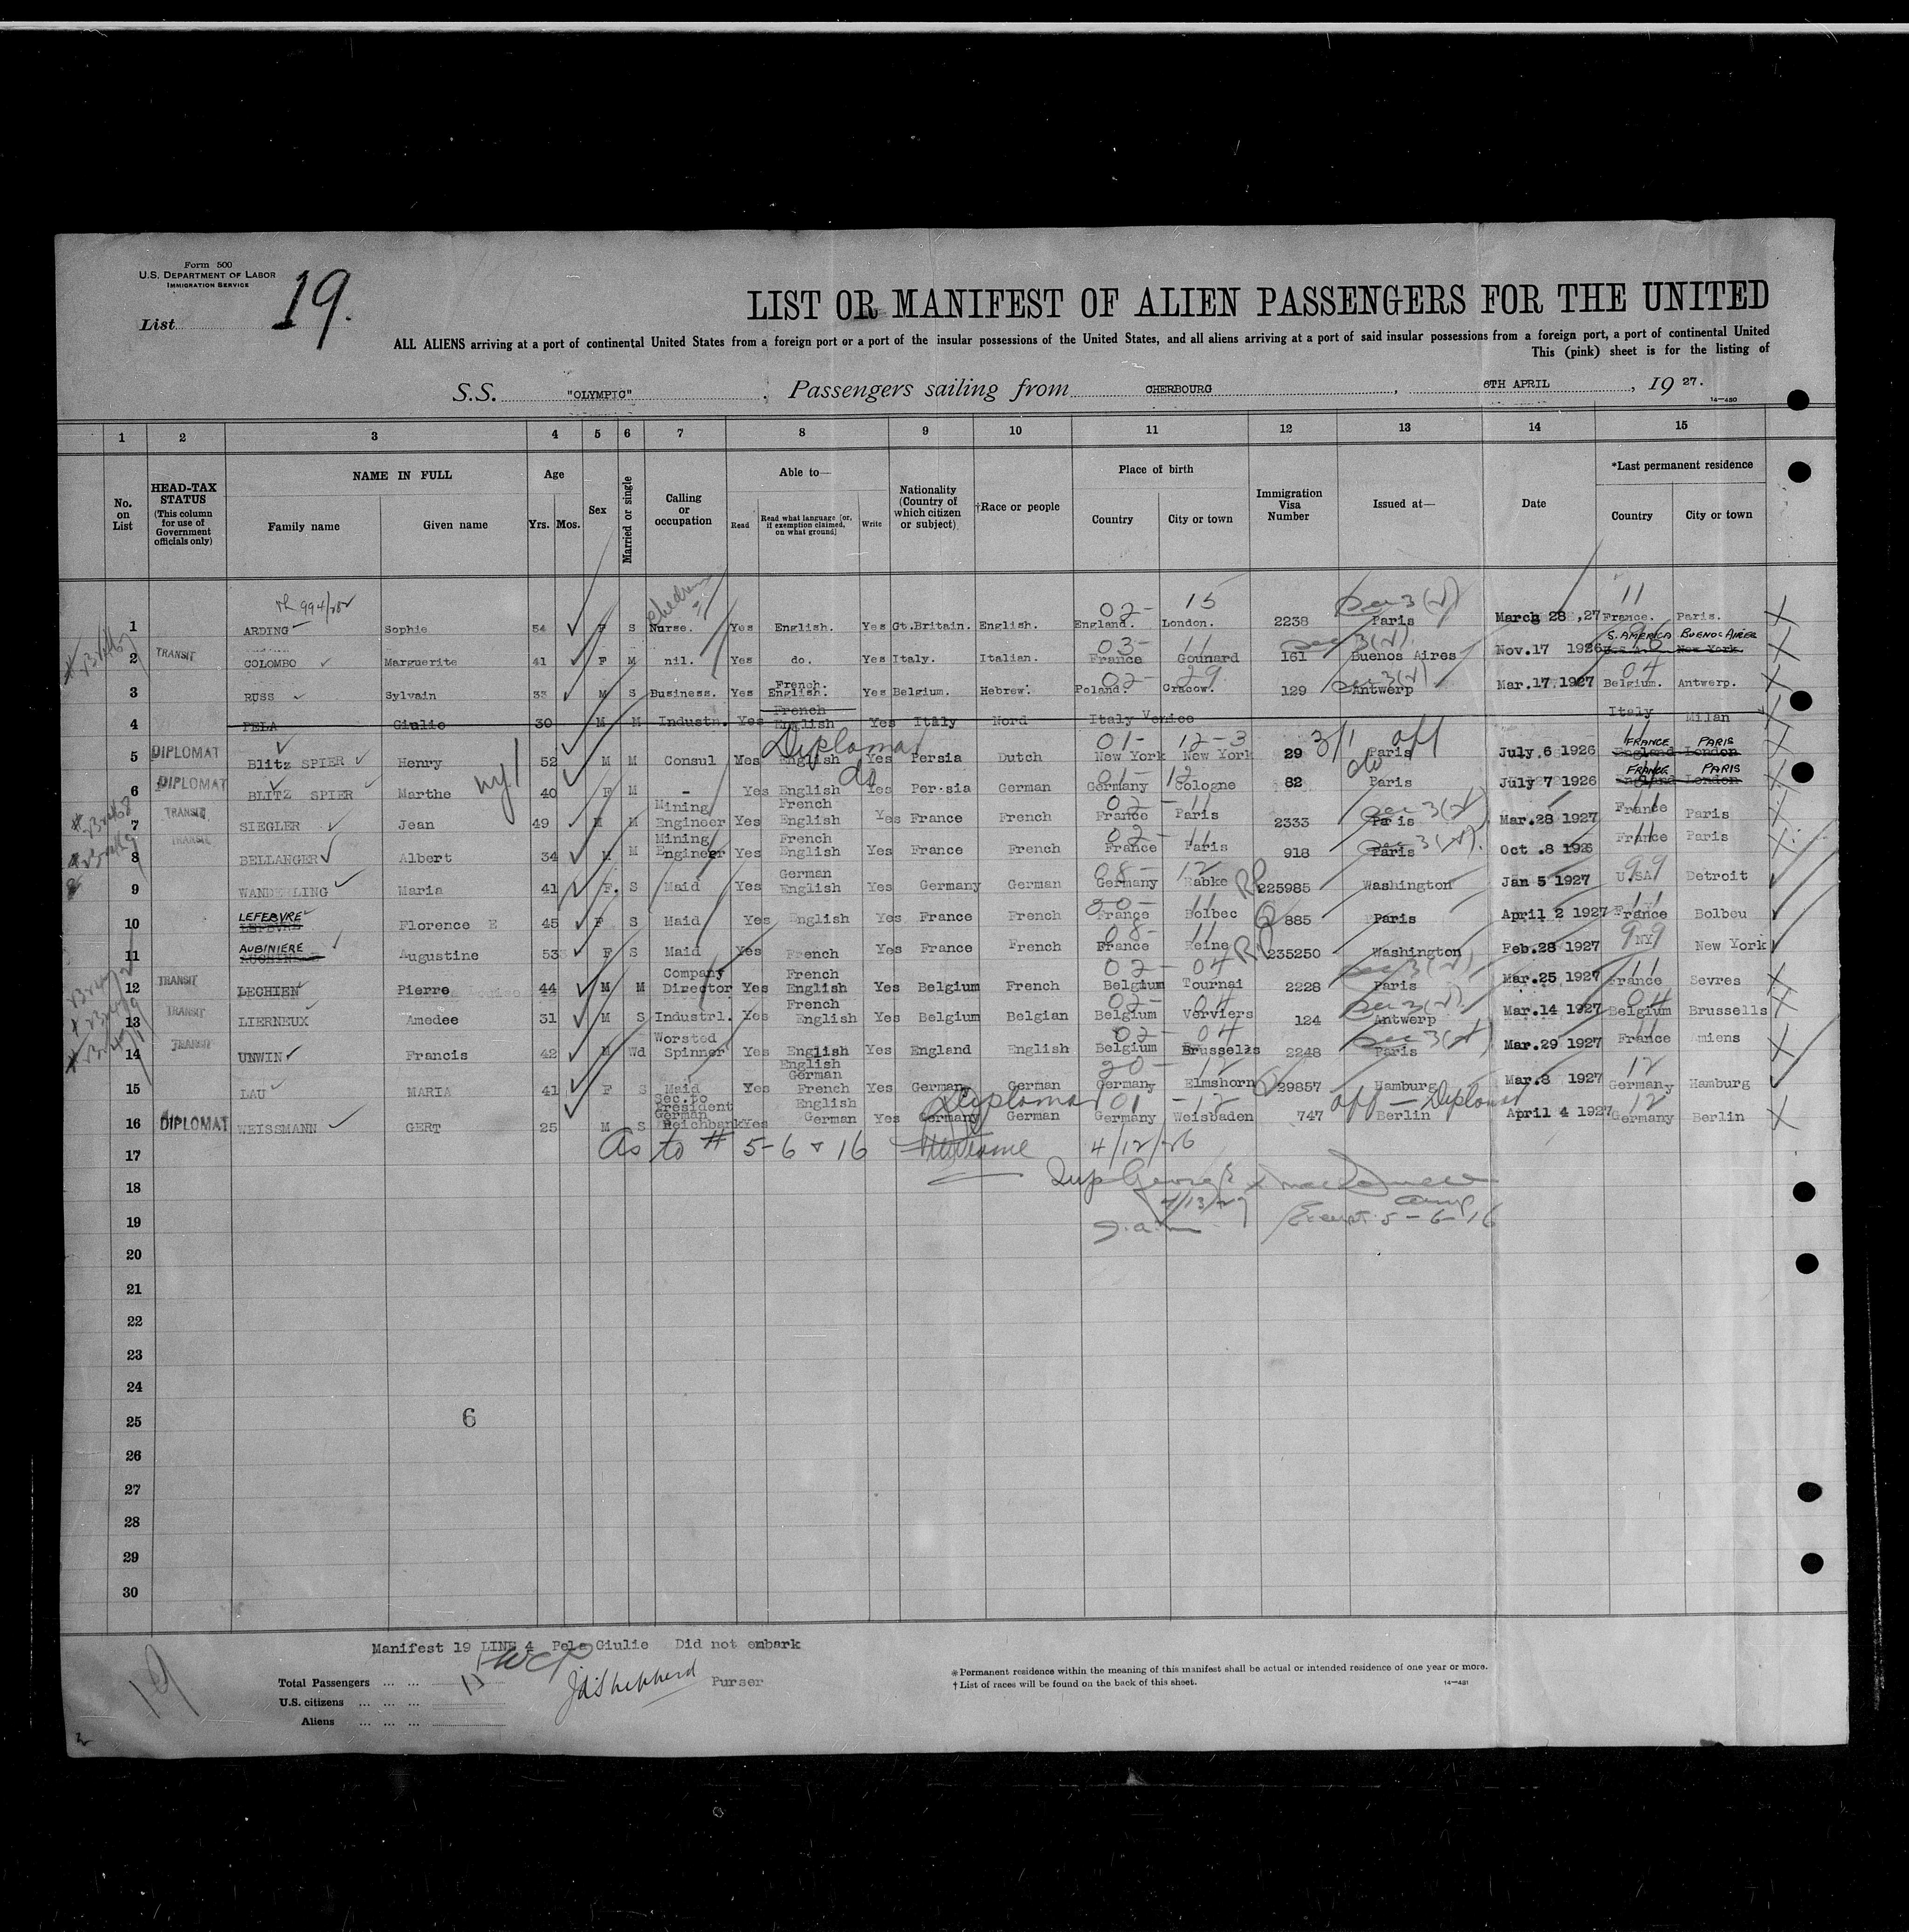 Form 500
U.S. DEPARTMENT OF LABOR
IMMIGRATION SERVICE
List 19.
LIST OR MANIFEST OF ALIEN PASSENGERS FOR THE UNITED
ALL ALIENS arriving at a port of continental United States from a foreign port or a port of the insular possessions of the United States, and all aliens arriving at a port of said insular possessions from a foreign port, a port of continental United
This (pink) sheet is for the listing of
S.S. "OLYMPIC", Passengers sailing from CHERBOURG, 6TH APRIL, 1927.
14—480
1 2 3 4 5 6 7 8 9 10 11 12 13 14 15
No. on List
HEAD-TAX STATUS (This column for use of Government officials only)
NAME IN FULL
Family name Given name
Age
Yrs. Mos.
Sex
Married or single
Calling or occupation
Able to—
Read
Read what language [or, if exemption claimed, on what ground]
Write
Nationality (Country of which citizen or subject)
†Race or people
Place of birth
Country City or town
Immigration Visa Number
Issued at—
Date
*Last permanent residence
Country City or town
children 02- 15 11
1 ARDING Sophie 54 F S Nurse. Yes English. Yes Gt.Britain. English. England. London. 2238 Paris March 28,27 France. Paris.
03- 11 S. AMERICA BUENOS AIRES
2 TRANSIT COLOMBO Marguerite 41 F M nil. Yes do. Yes Italy. Italian. France Gounard 161 Buenos Aires Nov.17 1926 New York
French. 02- 29 04
3 RUSS Sylvain 33 M S Business. Yes English. Yes Belgium. Hebrew. Poland. Cracow. 129 Antwerp Mar.17,1927 Belgium. Antwerp.
French
4 PELA Giulio 30 M M Industn. Yes English Yes Italy Nord Italy Venice Italy Milan
Diplomat 01- 12-3 3/1 off FRANCE PARIS
5 DIPLOMAT Blitz SPIER Henry 52 M M Consul Yes English Yes Persia Dutch New York New York 29 Paris July.6 1926 England London
do 01- 12 do FRANCE PARIS
6 DIPLOMAT BLITZ SPIER Marthe 40 F M - Yes English Yes Per.sia German Germany Cologne 82 Paris July 7 1926 England London
Mining French 02- 11 11
7 TRANSIT SIEGLER Jean 49 M M Engineer Yes English Yes France French France Paris 2333 Paris Mar.28 1927 France Paris
Mining French 02- 11 11
8 TRANSIT BELLANGER Albert 34 M M Engineer Yes English Yes France French France Paris 918 Paris Oct .8 1926 France Paris
German 08- 12 99
9 WANDERLING Maria 41 F. S Maid Yes English Yes Germany German Germany Rabke 225985 Washington Jan 5 1927 USA Detroit
LEFEBVRE 11 11
10 Florence E 45 F S Maid Yes English Yes France French France Bolbec 885 Paris April 2 1927 France Bolbeu
AUBINIERE 08- 11 99
11 Augustine 53 F S Maid Yes French Yes France French France Reine 235250 Washington Feb.28 1927 NY New York
Company French 02- 04 11
12 TRANSIT LECHIEN Pierre 44 M M Director Yes English Yes Belgium French Belgium Tournai 2228 Paris Mar.25 1927 France Sevres
French 02- 04 04
13 TRANSIT LIERNEUX Amedee 31 M S Industrl. Yes English Yes Belgium Belgian Belgium Verviers 124 Antwerp Mar.14 1927 Belgium Brussells
Worsted 02- 04 11
14 TRANSIT UNWIN Francis 42 M Wd Spinner Yes English Yes England English Belgium Brussells 2248 Paris Mar.29 1927 France Amiens
English
German 12
15 LAU MARIA 41 F S Maid Yes French Yes German German Germany Elmshorn 29857 Hamburg Mar.8 1927 Germany Hamburg
Sec.to President German English Diplomat 01 - 12 off — Diplomat 12
16 DIPLOMAT WEISSMANN GERT 25 M S Reichbank Yes German Yes Germany German Germany Weisbaden 747 Berlin April 4 1927 Germany Berlin
17 As to # 5-6 & 16 4/12/26
18
19 Except 5-6-16
20
21
22
23
24
25 6
26
27
28
29
30
Manifest 19 LINE 4 Pela Giulie Did not embark
Total Passengers
U.S. citizens
Aliens
Purser
* Permanent residence within the meaning of this manifest shall be actual or intended residence of one year or more.
† List of races will be found on the back of this sheet.
14—481
19